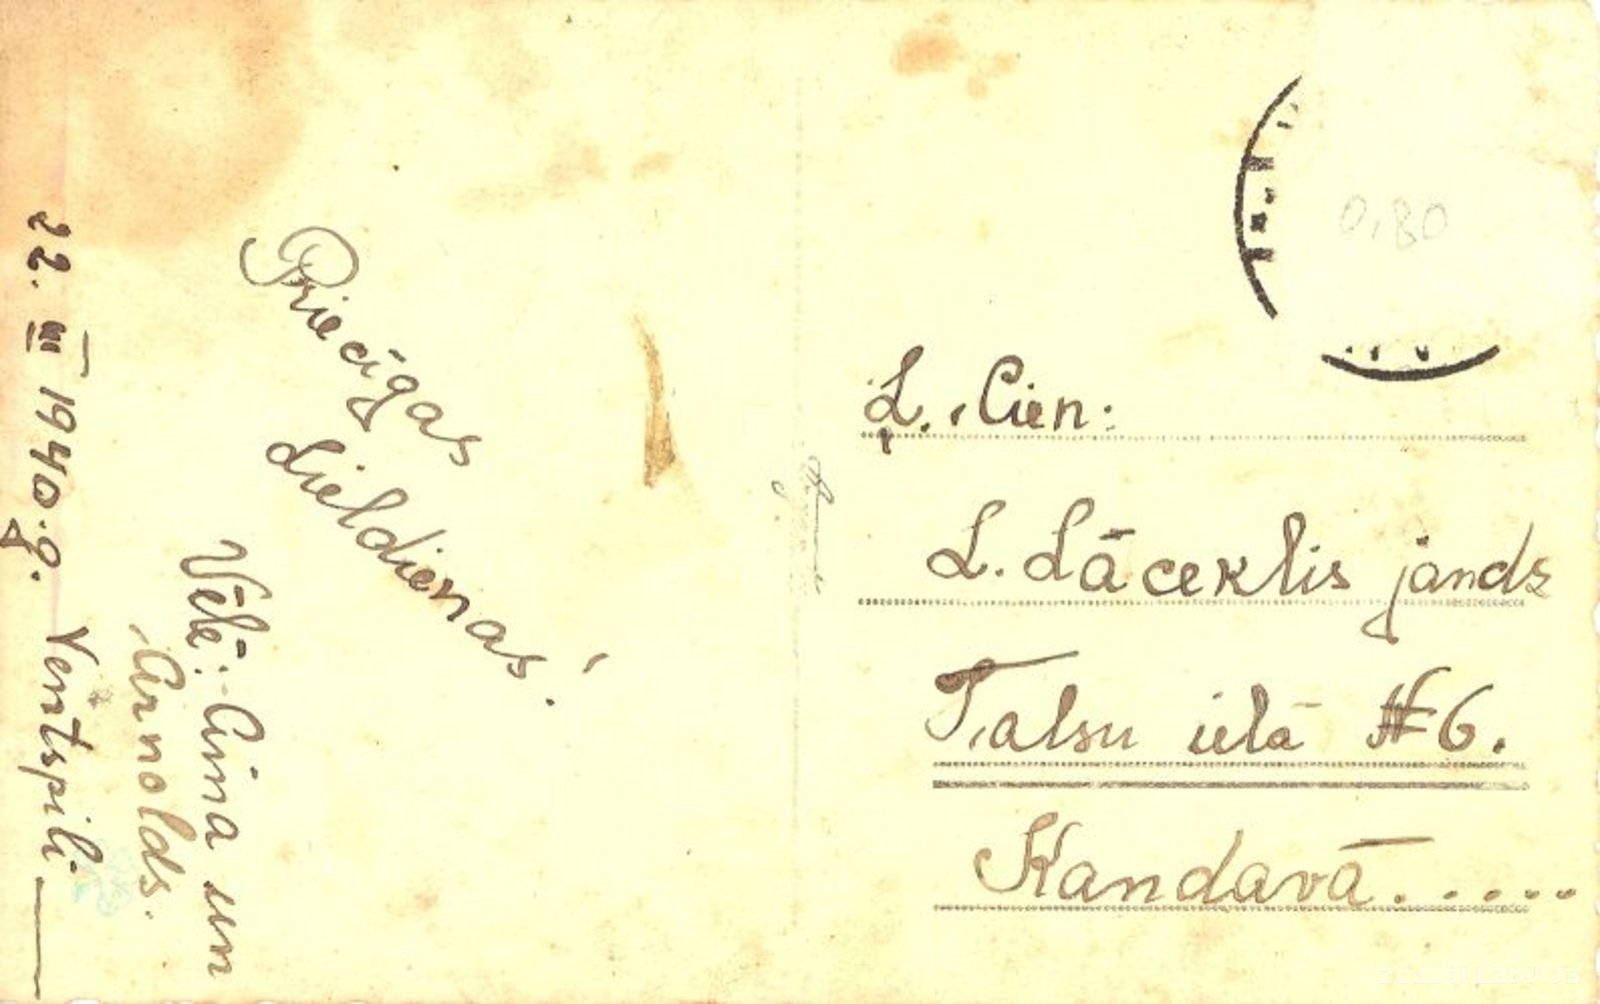 Priecīgas
Lieldienas!
Vēlē: Aina un
Arnolds.
22. III 1940.g. Ventspilī
Ļ. Cien:
L. Lāceklis jandz
Talsu ielā #6.
Kandavā.....
0,80